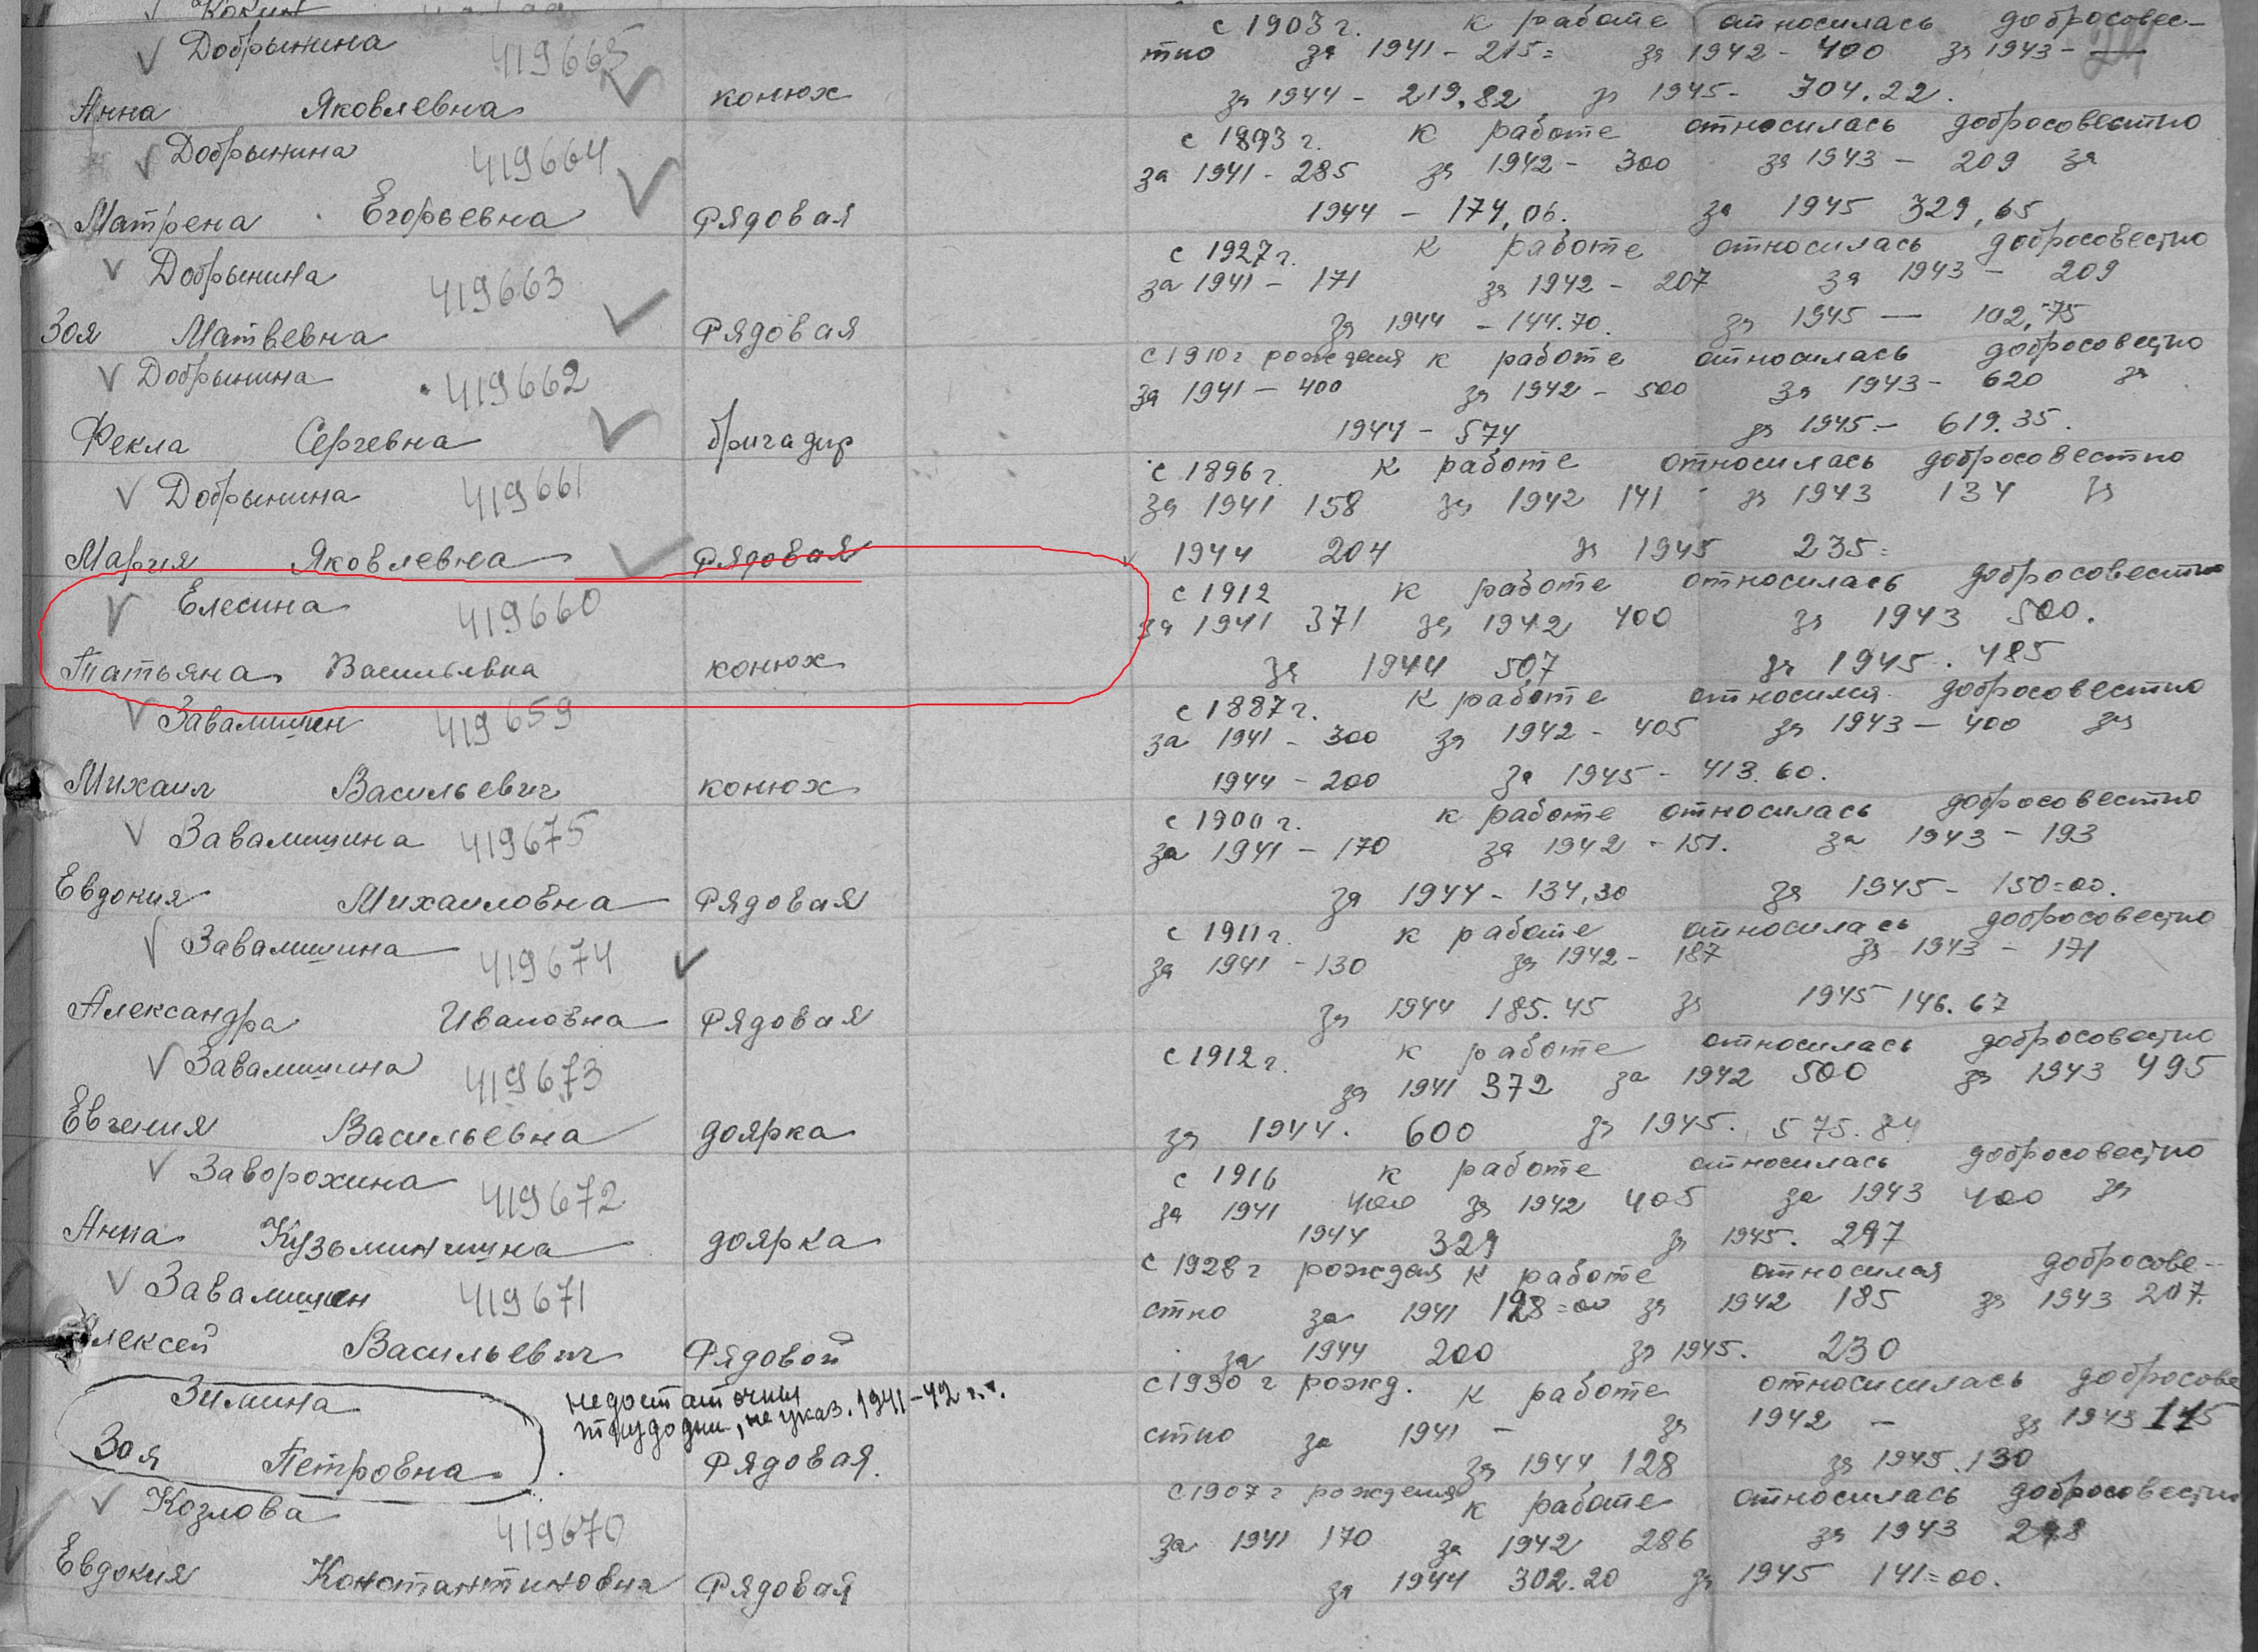 Добрынина 419665 с 1903 г. к работе относилась добросовес-
тно за 1941 - 215= за 1942 - 400 за 1943 -
Анна Яковлевна конюх за 1944 - 219.82 за 1945 - 304.22.
Добрынина 419664 с 1893 г. к работе относилась добросовестно
за 1941 - 285 за 1942 - 300 за 1943 - 209 за
Матрена Егорьевна Рядовая 1944 - 174,06. за 1945 329,65
Добрынина 419663 с 1927 г. к работе относилась добросовестно
за 1941 - 171 за 1942 - 207 за 1943 - 209
Зоя Матвевна Рядовая за 1944 - 144.70. за 1945 — 102,75
Добрынина 419662 с 1910 г рождения к работе относилась добросовестно
за 1941 - 400 за 1942 - 500 за 1943 - 620 за
Фекла Сергевна бригадир 1944 - 574 за 1945 - 619.35.
Добрынина 419661 с 1896 г. к работе относилась добросовестно
за 1941 158 за 1942 141 за 1943 134 за
Мария Яковлевна Рядовая 1944 204 за 1945 235=
Елесина 419660 с 1912 к работе относилась добросовестно
за 1941 371 за 1942 400 за 1943 500.
Татьяна Васильевна конюх за 1944 507 за 1945. 485
Завалишин 419659 с 1887 г. к работе относился добросовестно
за 1941 - 300 за 1942 - 405 за 1943 - 400 за
Михаил Васильевич конюх 1944 - 200 за 1945 - 413.60.
Завалишина 419675 с 1900 г. к работе относилась добросовестно
за 1941 - 170 за 1942 - 151. за 1943 - 193
Евдокия Михаиловна Рядовая за 1944 - 134,30 за 1945 - 150=00.
Завалишина 419674 с 1911 г. к работе относилась добросовестно
за 1941 - 130 за 1942 - 187 за 1943 - 171
Александра Ивановна Рядовая за 1944 185.45 за 1945 146.67
Завалишина 419673 с 1912 г. к работе относилась добросовестно
за 1941 372 за 1942 500 за 1943 495
Евгения Васильевна доярка за 1944. 600 за 1945. 575.84
Заворохина 419672 с 1916 к работе относилась добросовестно
за 1941 400 за 1942 405 за 1943 400 за
Анна Кузьминишна доярка 1944 329 за 1945. 297
Завалишин 419671 с 1928 г рождения к работе относился добросове-
стно за 1941 198=00 за 1942 185 за 1943 207.
Алексей Васильевич Рядовой за 1944 200 за 1945. 230
Зимина недостаточны с 1930 г рожд. к работе относисилась добросове
трудодни, не указ. 1941-42 г.г. стно за 1941 - за 1942 - за 1943 115
Зоя Петровна Рядовая. за 1944 128 за 1945. 130
Козлова 419670 с 1907 г рождения к работе относилась добросовестно
за 1941 170 за 1942 286 за 1943 298
Евдокия Константиновна Рядовая за 1944 302.20 за 1945 141=00.